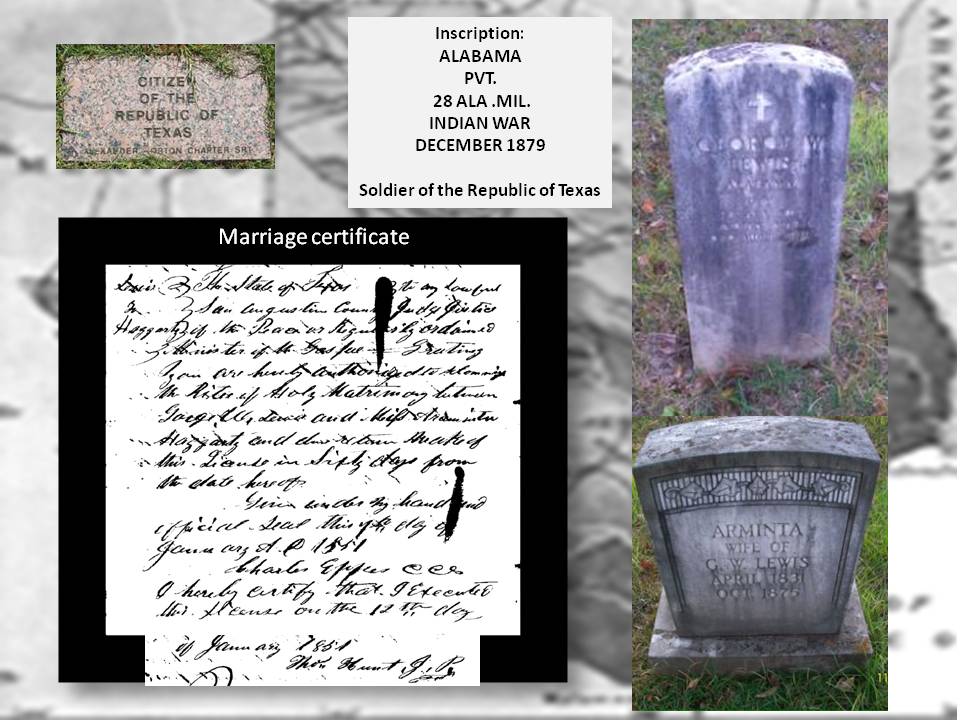 CITIZEN
OF THE
REPUBLIC OF
TEXAS
ALEXANDER HORTON CHARTER SRT
Inscription:
ALABAMA
PVT.
28 ALA .MIL.
INDIAN WAR
DECEMBER 1879
Soldier of the Republic of Texas
GEORGE W
LEWIS
ALABAMA
Marriage certificate
The State of Texas to any lawful
San Augustin County Judge Justice
of the Peace or Regularly ordained
Minister of the Gospel Greeting
You are hereby authorized to
the Rites of Holy Matrimony between
George W. Lewis and Miss Araminta
Haggarty and due return make of
this License in Sixty days from
the date hereof
Given under my hand and
official seal this day of
January A D 1851
Charles Eppes CCC
I hereby certify that I Executed
this License on the 12th day
of January 1851
Thos Hunt J. P.
ARMINTA
WIFE OF
G. W. LEWIS
APRIL 1831
OCT. 1875
11
ARKANSAS